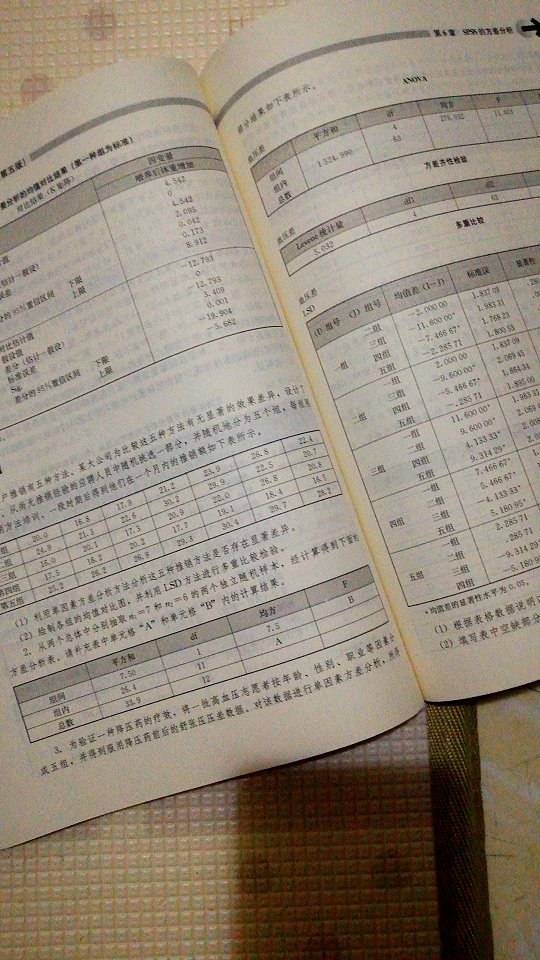 第五版）
差分析的均值对比结果（第一种组为标准）
对比结果（K 矩阵）
因变量
喂养后体重增加
4.542
0
4.542
2.095
0.042
0.173
8.912
-12.793
0
-12.793
3.409
0.001
-19.904
-5.682
差分（估计-假设）
标准误差
Sig.
差分的 95% 置信区间 下限
上限
户推销有五种方法，某大公司为比较这五种方法有无显著的效果差异，设计了
，从尚无推销经验的应聘人员中随机挑选一部分，并随机地分为五个组，每组用
方法培训，一段时期后得到他们在一个月内的推销额如下表所示。
20.0 16.8 17.9 21.2 23.9 26.8 22.4
24.9 21.3 22.6 30.2 29.9 22.5 20.7
16.0 20.1 17.3 20.9 22.0 26.8 20.8
第四组 17.5 18.2 20.2 17.7 19.1 18.4 16.5
第五组 25.2 26.2 26.9 29.3 30.4 29.7 28.2
（1）利用单因素方差分析方法分析这五种推销方法是否存在显著差异。
（2）绘制各组的均值对比图，并利用 LSD 方法进行多重比较检验。
2．从两个总体中分别抽取 n₁=7 和 n₂=6 的两个独立随机样本，经计算得到下面的
方差分析表。请补充表中单元格“A”和单元格“B”内的计算结果。
平方和 df 均方 F
组间 7.50 1 7.5 B
组内 26.4 11 A
总数 33.9 12
3．为验证一种降压药的疗效，将一批高血压志愿者按年龄、性别、职业等因素
成五组，并得到服用降压药前后的舒张压压差数据。对该数据进行单因素方差分析，
第 6 章 SPSS 的方差分析
部分结果如下表所示。
ANOVA
血压差
平方和 df 均方 F
组间 4
组内 1 524.990 63
总数
方差齐性检验
血压差
Levene 统计量 df1 df2
5.032 4 63
多重比较
血压差
LSD
(I) 组号 (J) 组号 均值差 (I-J) 标准误 显著性
一组 二组 -2.000 00 1.837 09
三组 -11.600 00* 1.983 31
四组 -7.466 67* 1.768 23
五组 -2.285 71 1.800 53
二组 一组 2.000 00 1.837 09
三组 -9.600 00* 2.069 45
四组 -5.466 67* 1.864 34
五组 -.285 71 1.895 00
三组 一组 11.600 00* 1.983 31
二组 9.600 00*
四组 4.133 33*
五组 9.314 29*
四组 一组 7.466 67*
二组 5.466 67*
三组 -4.133 33*
五组 5.180 95*
五组 一组 2.285 71
二组 .285 71
三组 -9.314 29*
四组 -5.180 95*
*均值差的显著性水平为 0.05。
（1）根据表格数据说明
（2）填写表中空缺部分